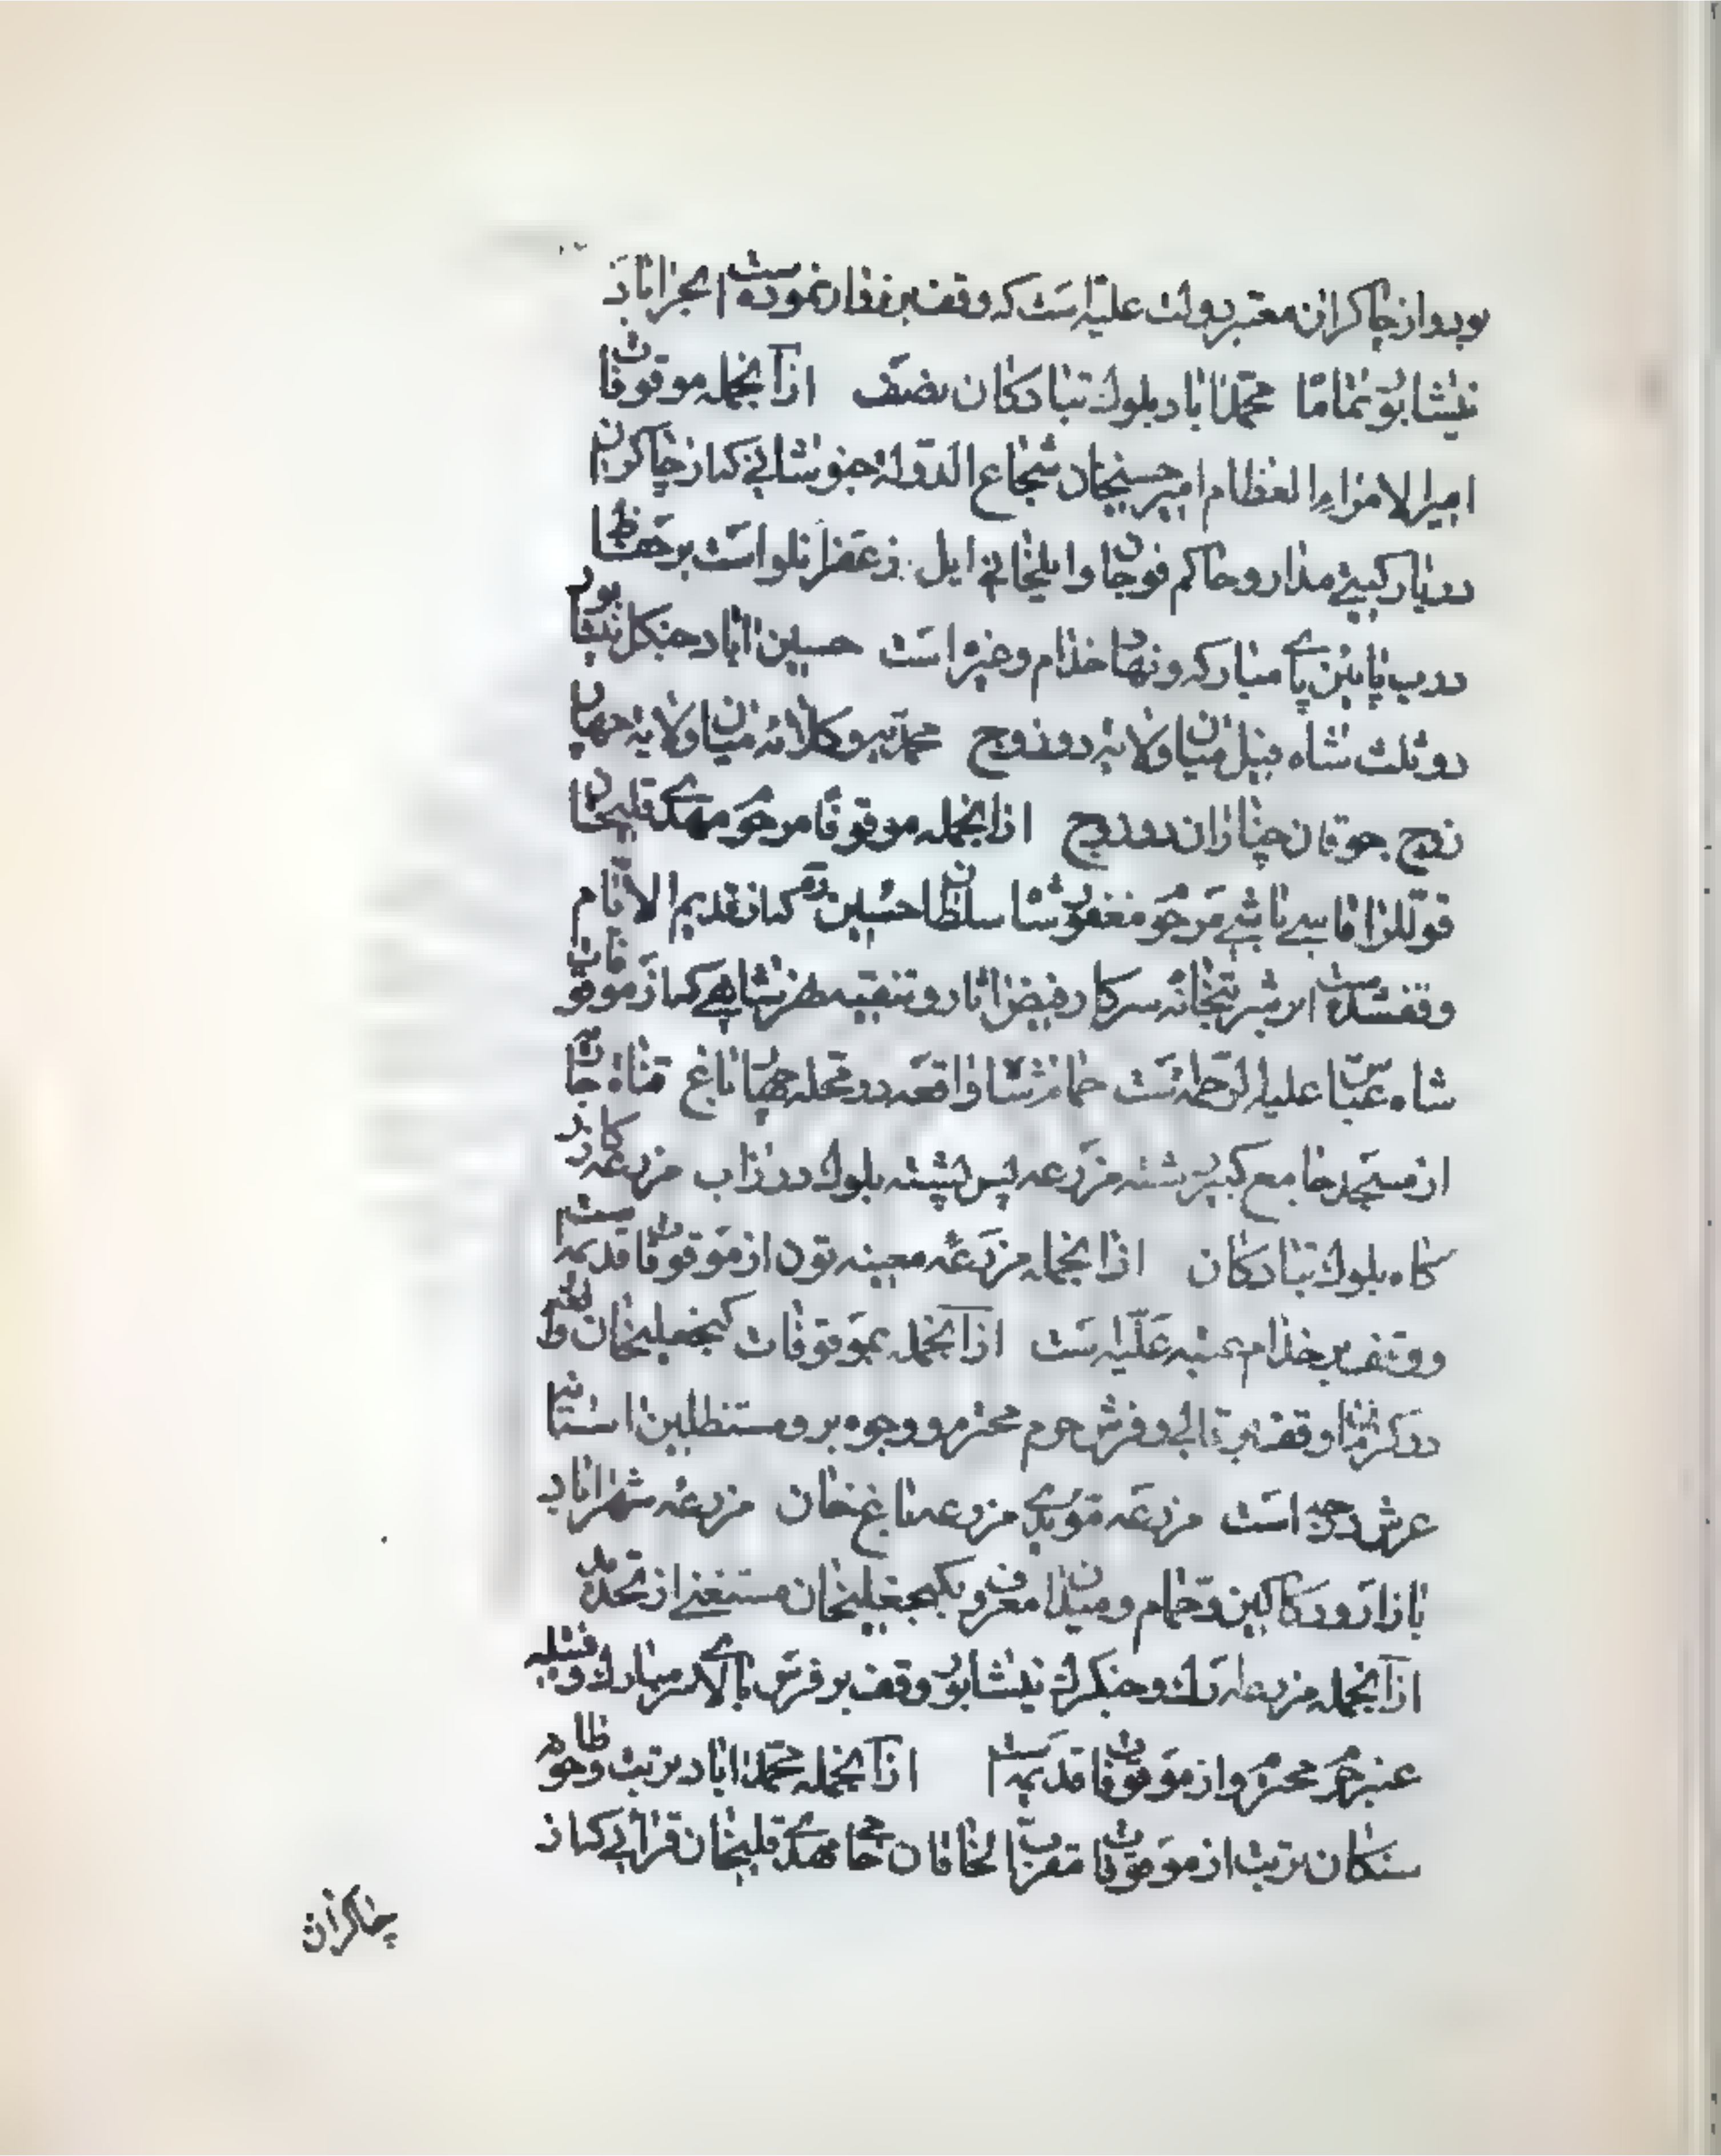 بود و از چاکران معتبر دولت علیه است که وقف بر زوار نموده است ابحرآباد
نیشابور تماما محمدآباد بلوک تبادکان نصف از آنجمله موقوفات
امیرالامراء العظام امیر حسینخان شجاع الدوله خبوشانی که از چاکران
دربار مدار و حاکم قوچان و ایلخانی ایل زعفرانلو است بر حفاظ
درب پایین پای مبارکه و نهار خدام و غیره است حسین آباد جنگل نیشابور
دو ثلث شاه فیل میان ولایه دو زوج محمد کلاته میان ولایه چهار
زوج جوقان چناران دو زوج از آنجمله موقوفات مرحوم مهدیقلیخان
قوللر آقاسی باشی مرحوم مغفور شاه سلطان حسین که از قدیم الایام
وقف شده است بر شربتخانه سرکار فیض آثار و تنقیه نهر شاهی که از موقوفات
شاه عباس علیه الرحمه است حمام شاه واقعه در محله چهار باغ قناة
از مسجد جامع کبیر مزرعه پس پشته بلوک درزاب مزرعه
کاه بلوک تبادکان از آنجمله مزرعه معینه تون از موقوفات قدیمه است
و وقف بر خدام عتبه علیه است از آنجمله موقوفات گنجعلیخان
در کرمان وقف بر و فرش حرم محترم و وجوه بر و مستظلین آستان
عرش درجه است مزرعه مؤیدی مزرعه باغ خان مزرعه شهرآباد
بازار و دکاکین و حمام و میدان معروف بگنجعلیخان مستغنی از تحدید
از آنجمله مزرعه ترک و نیشابور وقف بر فرش بالای سر مبارک و
عنبر حرم محترم و از موقوفات قدیمه است از آنجمله محمدآباد تربت و
سنگان تربت از موقوفات مقرب الخاقان حاجی مهدیقلیخان قرائی که از
چاکران